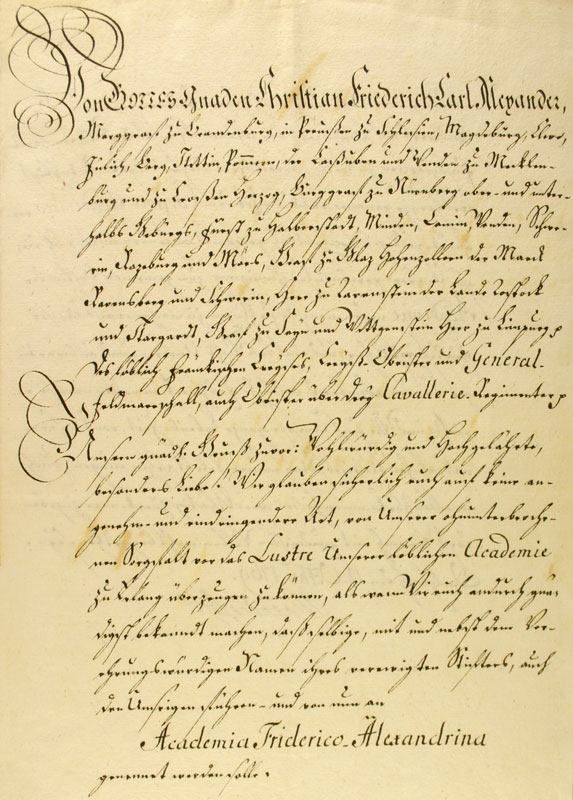 Von GOTTES Gnaden Christian Friederich Carl Alexander,
Marggraf zu Brandenburg, in Preußen zu Schlesien, Magdeburg, Cleve,
Jülich, Berg, Stettin, Pommern, der Caßuben und Wenden zu Mecklen-
burg und zu Croßen Herzog, Burggraf zu Nürnberg ober- und unter-
halb Geburgs, Fürst zu Halberstadt, Minden, Camin, Wenden, Schwe-
rin, Razeburg und Mörs, Graf zu Glaz Hohenzollern der Marck
Ravensberg und Schwerin, Herr zu Ravenstein der Lande Rostock
und Stargardt, Graf zu Sayn und Wittgenstein Herr zu Limpurg p
Des löblich Fränkischen Creyses, Creyß-Obrister und General-
Feldmareschall, auch Obrister über drey Cavallerie-Regimenter p
Unsern gnädst. Gruß zuvor: Wohlwürdig und Hochgelahrte,
besonders Liebe! Wir glauben sicherlich euch auf keine an-
genehm- und eindringendere Art, von Unserer ohnunterbroche-
nen Sorgfalt vor das Lustre Unserer löblichen Academie
zu Erlang überzeugen zu können, als wann Wir euch andurch gnä-
digst bekannt machen, daß selbige, mit und nebst dem Ver-
ehrungswürdigen Namen ihres verewigten Stifters, auch
den Unsrigen führen- und von nun an
Academia Friderico-Alexandrina
genennet werden solle.